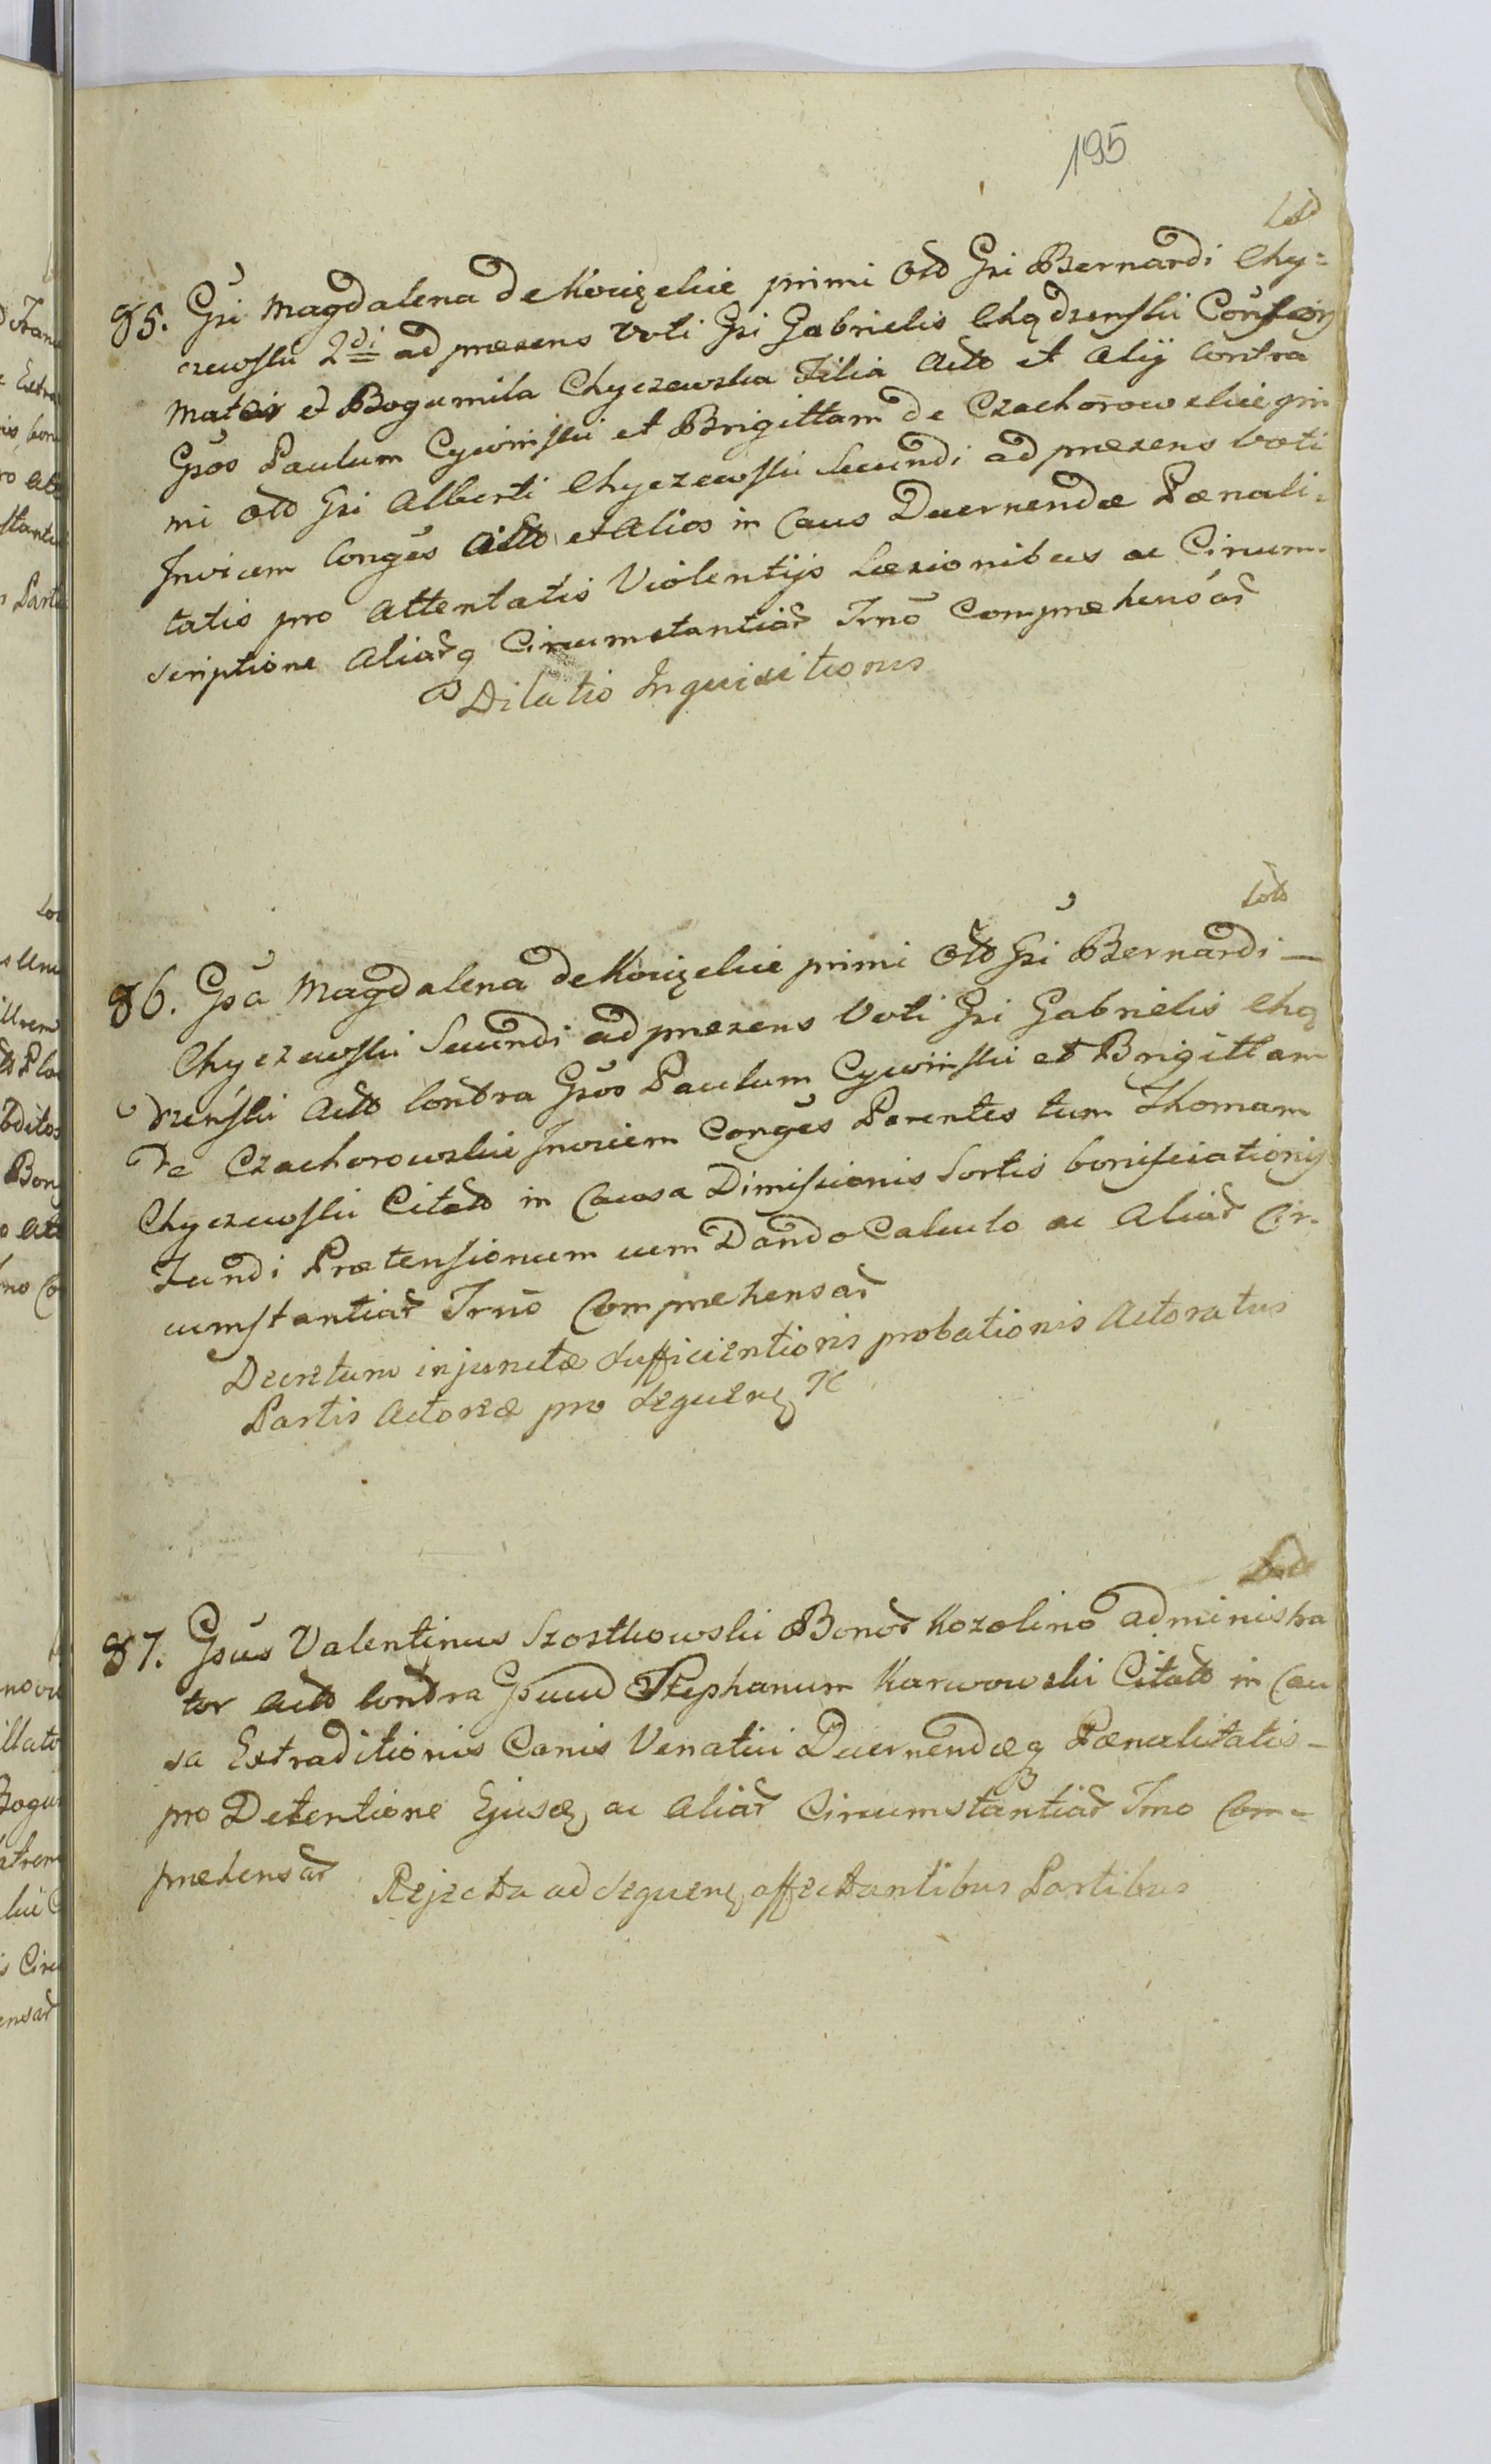 195
85. Gsi Magdalena de Konizelice primi Oto Gsi Bernardi Chy=
czewski 2di ad præsens Voti Gsi Gabrielis Chądzenski
Mater et Bogumila Chyczewska Filia Acto et Alij Contra
Gsos Paulum Cywinski et Brigittam de Czachorowskie pri
mi Oto Gsi Alberti Chyczewski Secundi ad præsens Voti
Invicem Conges Citto et Alios in Caus Decernendæ Pænali=
tatis pro Attentatis Violentijs Læsionibus ac Circum=
scriptione Aliarq Circumstantiar Trno Compræhensar
Dilatio Inquisitionis
Loto
86. Gsa Magdalena de Konizelice primi Oto Gsi Bernardi —
Chyczewski Secundi ad præsens Voti Gsi Gabrielis Chą
dzenski Acto Contra Gsos Paulum Cywinski et Brigittam
de Czachorowskie Invicem Conges Parentes tum Thomam
Chyczewski Citato in Causa Dimissionis Sortis bonificationis
Fundi Prætensionum cum Dando Calculo ac Aliar Cir=
cumstantiar Trno Compræhensar
Decretum injunctæ sufficientioris probationis Actoratus
Partis Actoreæ pro sequen
87. Gsus Valentinus Szostkowski Bonor Kozolino administra
tor Acto Contra Gsum Stephanum Karwowski Citato in Cau
sa Extraditionis Canis Venatici Decernendæq Pænalitatis —
pro Detentione Ejusd ac Aliar Circumstantiar Trno Com=
præhensar
Rejecta ad sequen affectantibus Partibus